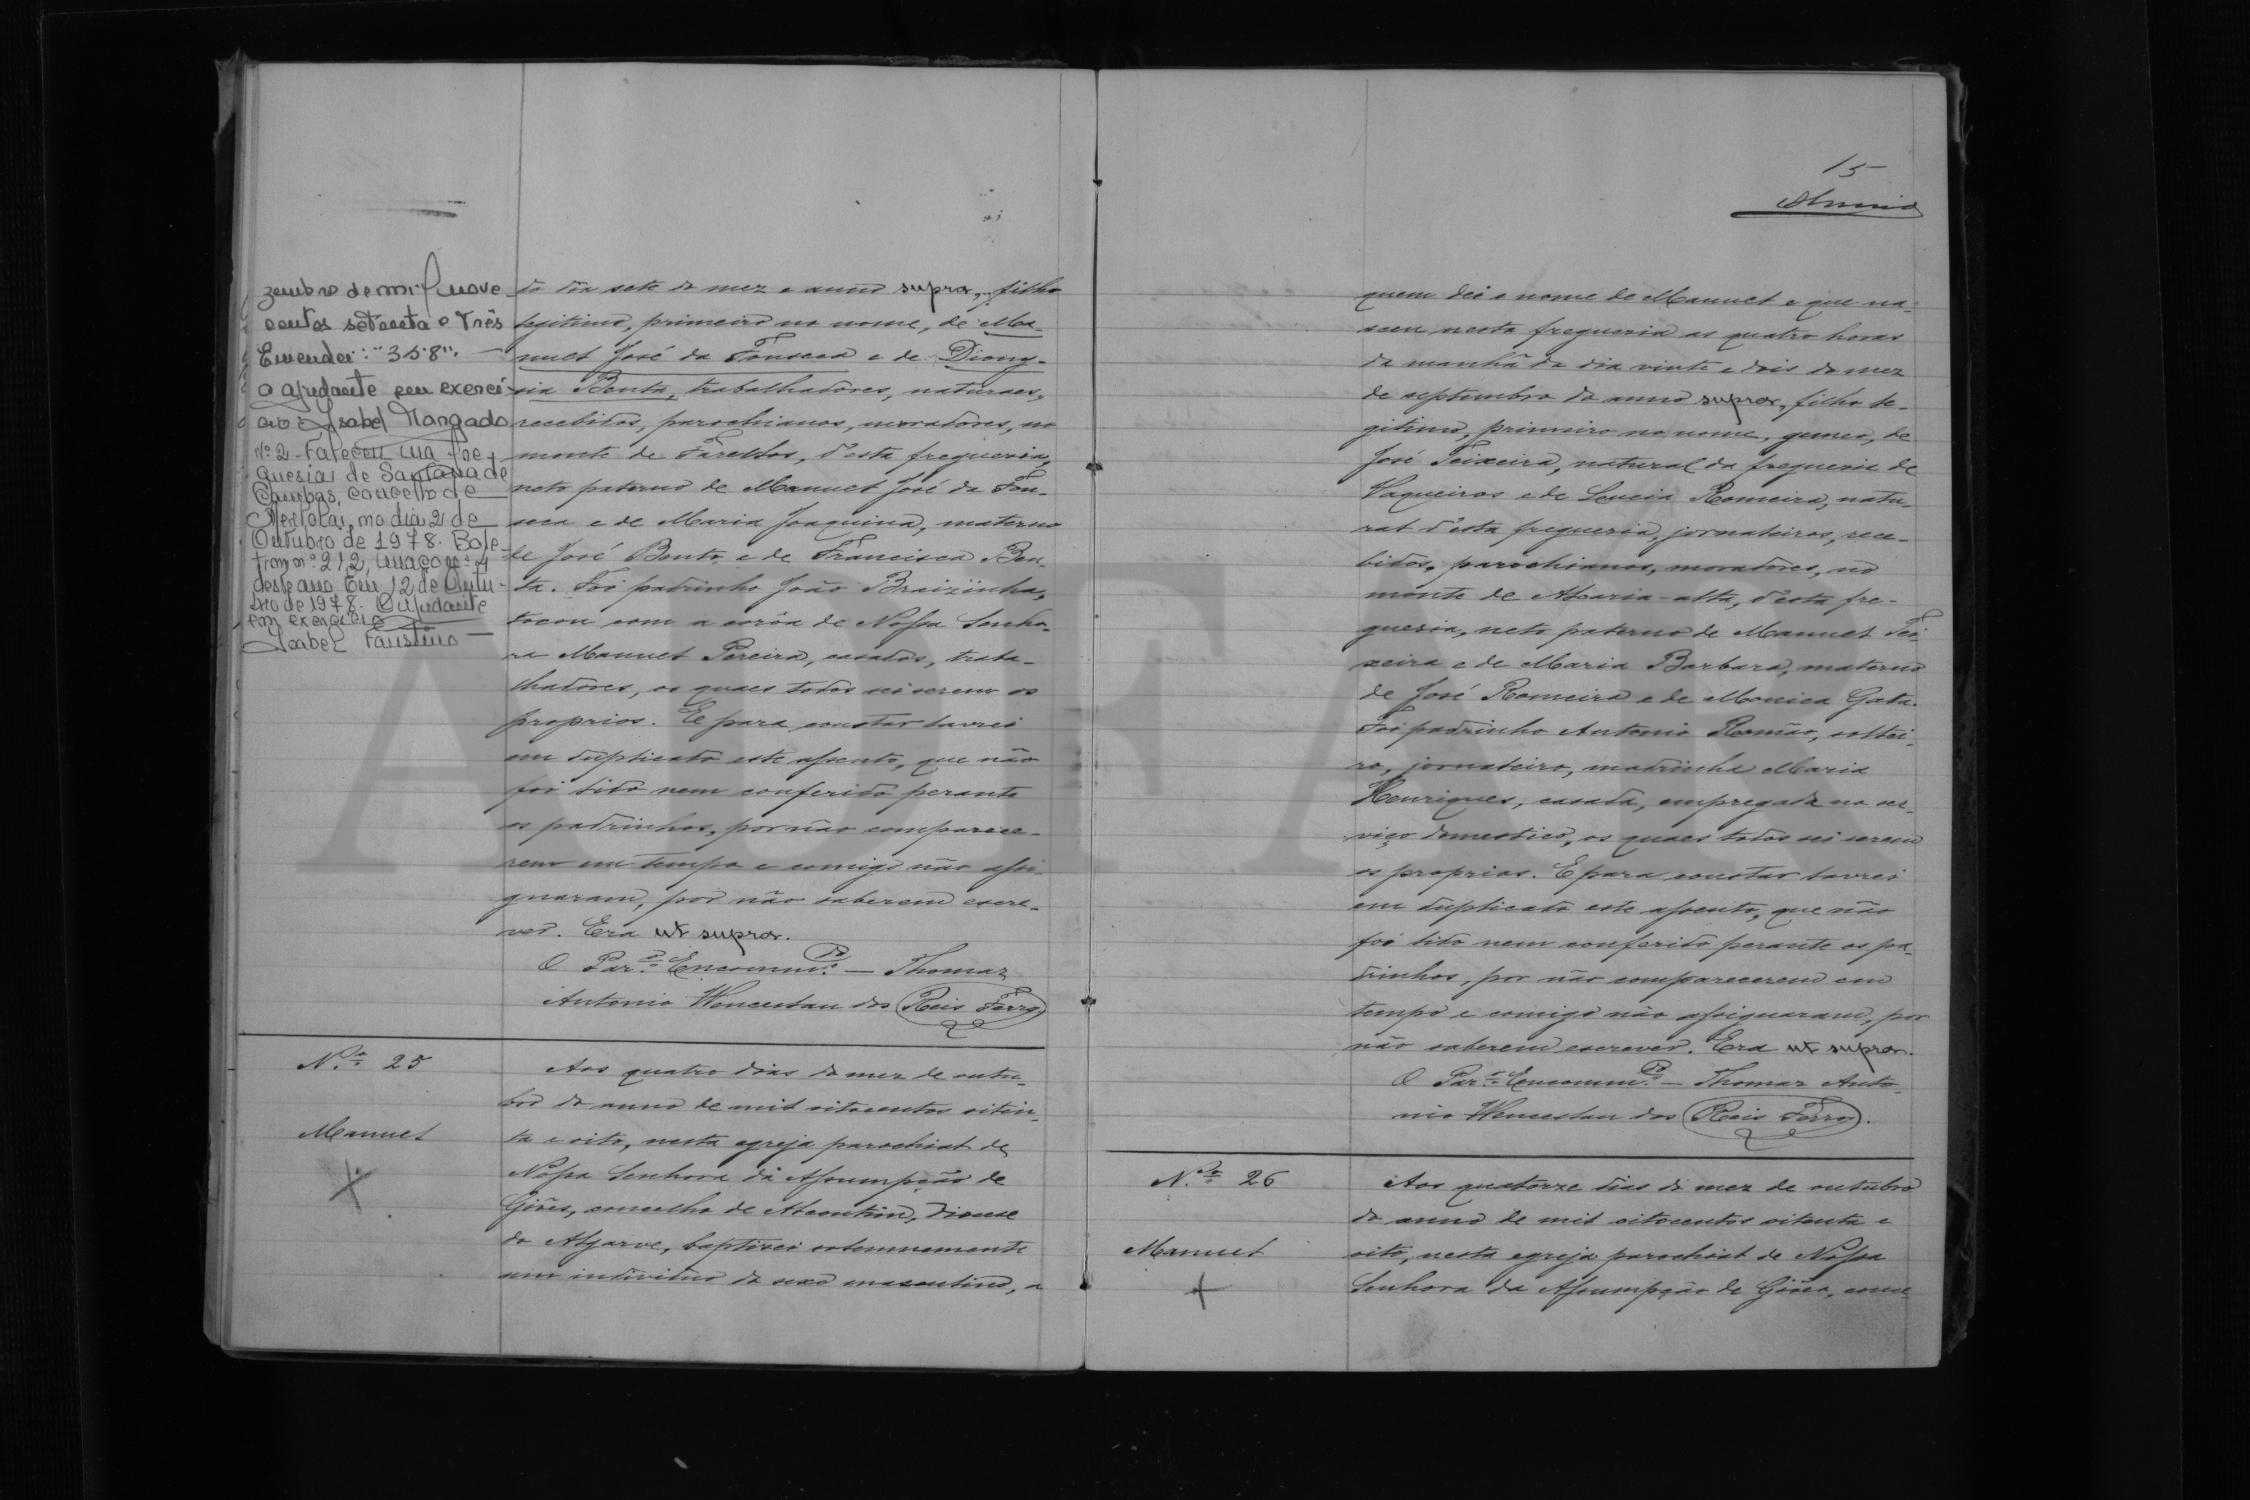 zembro de mil nove
centos setenta e três
Emendei: "358". —
O ajudante em exercí
cio Isabel Mangado
Nº 2 - Faleceu na fre
guesia de Santana de
Cambas, concelho de
Mertola, no dia 2 de
Outubro de 1978. Bole
tim nº 212, maço nº 4
deste ano. Em 12 de Outu
bro de 1978. O Ajudante
em exercicio
Isabel Faustino —
do dia sete do mez e anno supra, filho
legitimo, primeiro no nome, de Ma-
nuel José da Fonseca e de Diony-
sia Benta, trabalhadores, naturaes,
recebidos, parochianos, moradores, no
monte de Farelhos, d'esta freguesia,
neto paterno de Manuel José da Fon-
seca e de Maria Joaquina, materno
de José Bento e de Francisca Ben-
ta. Foi padrinho João Braizinha,
tocou com a corôa de Nossa Senho-
ra Manuel Pereira, casados, traba-
lhadores, os quaes todos sei serem os
proprios. E para constar lavrei
em duplicado este assento, que não
foi lido nem conferido perante
os padrinhos, por não comparece-
rem em tempo e comigo não assi-
gnaram, por não saberem escre-
ver. Era ut supra.
O Par.º Encomm.do — Thomaz
Antonio Wenceslau dos Reis Ferro
N.º 25
Manuel
Aos quatro dias do mez de outu-
bro do anno de mil oitocentos oiten-
ta e oito, nesta egreja parochial de
Nossa Senhora da Assumpção de
Giões, concelho de Alcoutim, diocese
do Algarve, baptisei solemnemente
um individuo do sexo masculino, a
15
quem dei o nome de Manuel e que na-
sceu nesta freguesia as quatro horas
da manhã do dia vinte e dois do mez
de septembro do anno supra, filho le-
gitimo, primeiro no nome, gemeo, de
José Teixeira, natural da freguesia de
Vaqueiros e de Lucia Romeira, natu-
ral d'esta freguesia, jornaleiros, rece-
bidos, parochianos, moradores, no
monte de Alcaria-alta, d'esta fre-
guesia, neto paterno de Manuel Tei-
xeira e de Maria Barbara, materno
de José Romeira e de Monica Gata.
Foi padrinho Antonio Romão, soltei-
ro, jornaleiro, madrinha Maria
Henriques, casada, empregada no ser-
viço domestico, os quaes todos sei serem
os proprios. E para constar lavrei
em duplicado este assento, que não
foi lido nem conferido perante os pa-
drinhos, por não comparecerem em
tempo e comigo não assignaram, por
não saberem escrever. Era ut supra.
O Par.º Encomm.do — Thomaz Anto-
nio Wenceslau dos Reis Ferro.
N.º 26
Manuel
Aos quatorze dias do mez de outubro
do anno de mil oitocentos oitenta e
oito, nesta egreja parochial de Nossa
Senhora da Assumpção de Giões, conce-